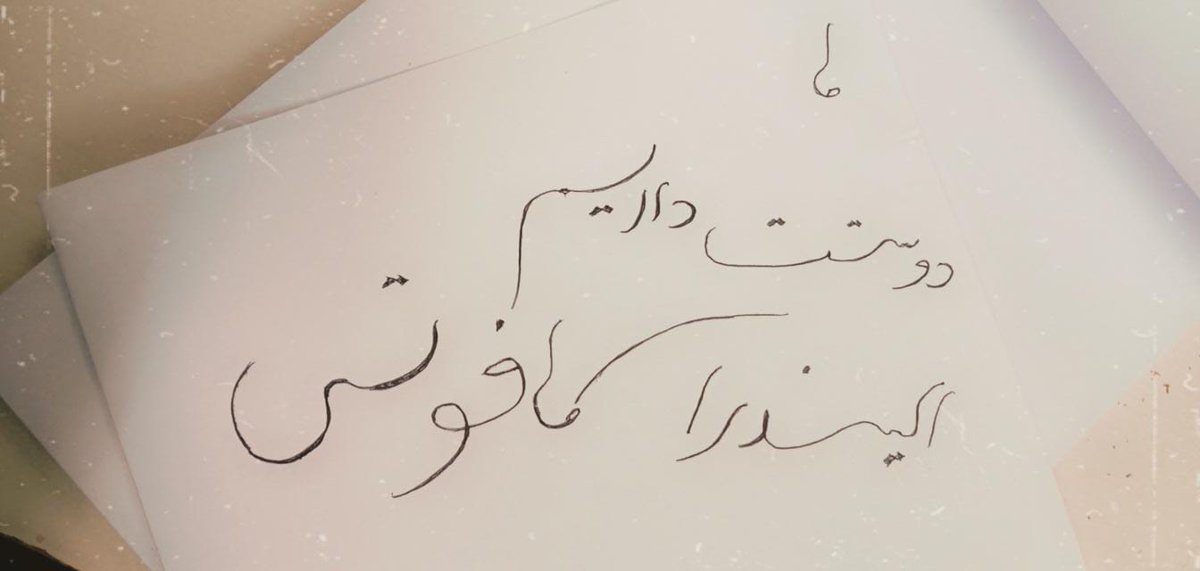 ما
دوستت داریم
الیندرا کافوتس